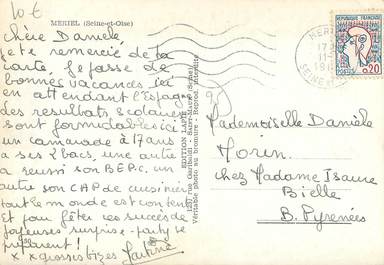 10 €
MÉRIEL (Seine-et-Oise)
Chère Danièle
je te remercie de ta
carte. Je passe de
bonnes vacances ici
en attendant l'Espagne
les resultats scolaires
sont formidables ici
un camarade à 17 ans
a ses 2 bacs, une autre
a reussi son B.E.P.C. un
autre son CAP de cuisinier
tout le monde est content
Et pour fêter ces succès de
joyeuses surprise-party se
préparent !
x x grosses bizes Martine
EDITION LAPIE
1257 rue Garibaldi Saint-Maur (Seine)
Véritable photo au bromure - Reprod. interdite
REPUBLIQUE FRANÇAISE
POSTES
0,20
MERIEL
17
SEINE
Mademoiselle Danièle
Morin
chez Madame Isaure
Bielle
B. Pyrenées